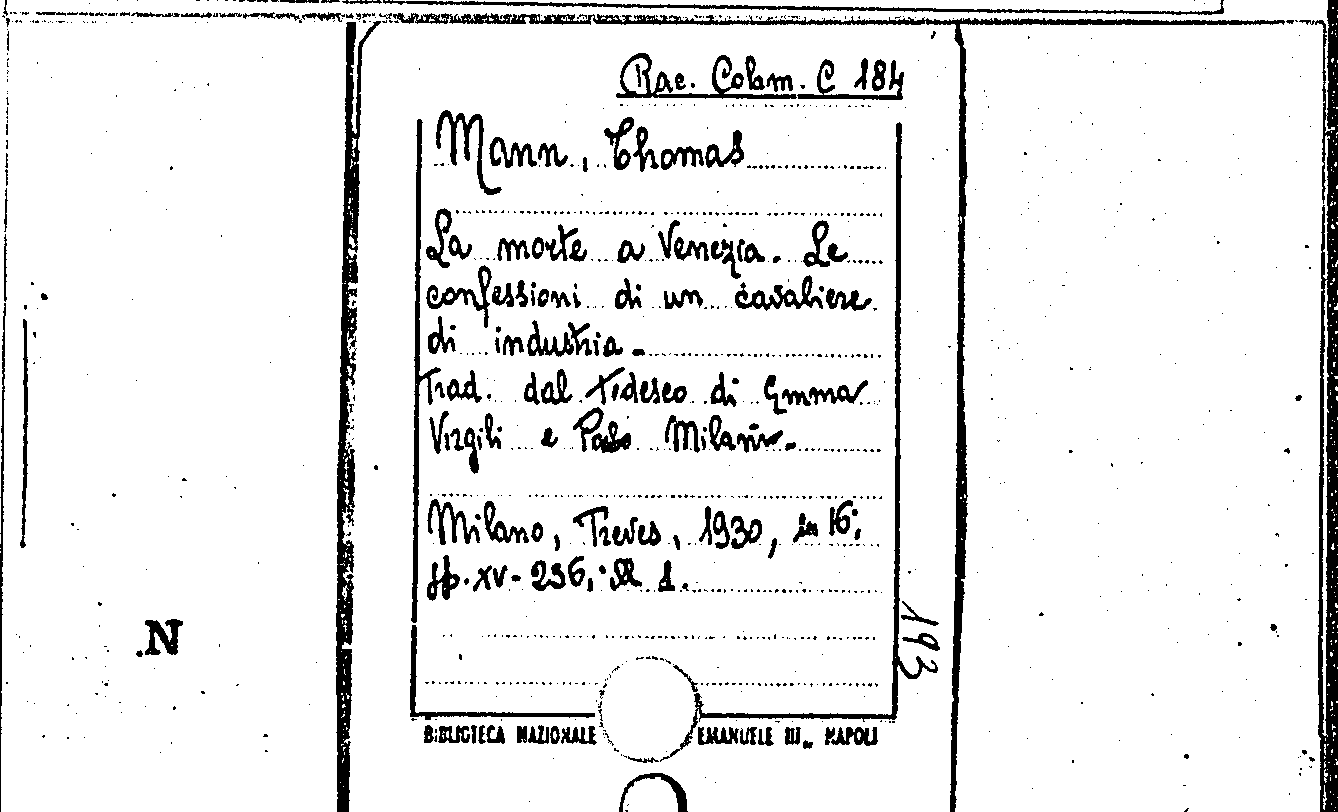 Rac. Colam. C 184
Mann, Thomas
La morte a Venezia. Le
confessioni di un cavaliere
di industria.
Trad. dal tedesco di Emma
Virgili e Paolo Milano.
Milano, Treves, 1930, in 16;
pp. XV-236, 1.
193
N.
BIBLIOTECA NAZIONALE EMANUELE III„ NAPOLI